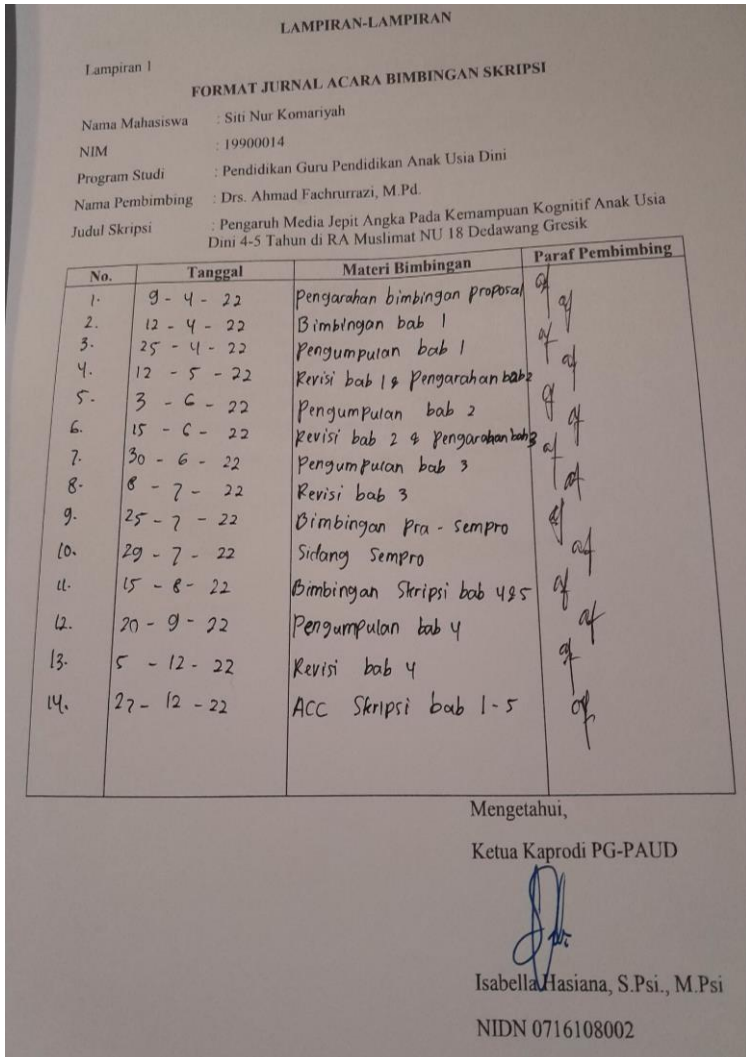 LAMPIRAN-LAMPIRAN
Lampiran 1
FORMAT JURNAL ACARA BIMBINGAN SKRIPSI
Nama Mahasiswa : Siti Nur Komariyah
NIM : 19900014
Program Studi : Pendidikan Guru Pendidikan Anak Usia Dini
Nama Pembimbing : Drs. Ahmad Fachrurrazi, M.Pd.
Judul Skripsi : Pengaruh Media Jepit Angka Pada Kemampuan Kognitif Anak Usia
Dini 4-5 Tahun di RA Muslimat NU 18 Dedawang Gresik
No. Tanggal Materi Bimbingan Paraf Pembimbing
1. 9 - 4 - 22 Pengarahan bimbingan proposal
2. 12 - 4 - 22 Bimbingan bab 1
3. 25 - 4 - 22 Pengumpulan bab 1
4. 12 - 5 - 22 Revisi bab 1 & Pengarahan bab 2
5. 3 - 6 - 22 Pengumpulan bab 2
6. 15 - 6 - 22 Revisi bab 2 & Pengarahan bab 3
7. 30 - 6 - 22 Pengumpulan bab 3
8. 8 - 7 - 22 Revisi bab 3
9. 25 - 7 - 22 Bimbingan Pra - Sempro
10. 29 - 7 - 22 Sidang Sempro
11. 15 - 8 - 22 Bimbingan Skripsi bab 4&5
12. 20 - 9 - 22 Pengumpulan bab 4
13. 5 - 12 - 22 Revisi bab 4
14. 27 - 12 - 22 ACC Skripsi bab 1-5
Mengetahui,
Ketua Kaprodi PG-PAUD
Isabella Hasiana, S.Psi., M.Psi
NIDN 0716108002